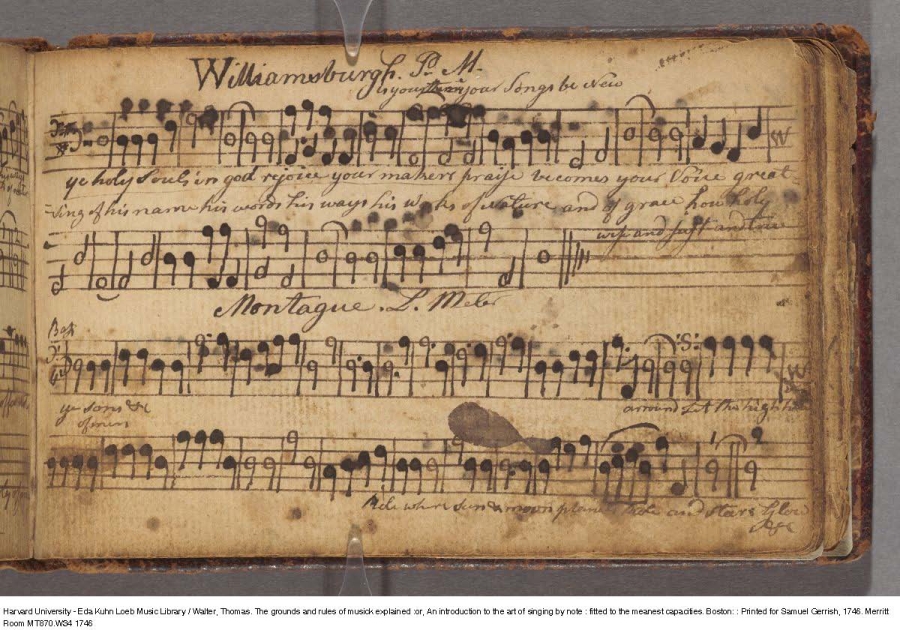 Williamsburgh. P. M.
your Songs be New
ye holy Souls in god rejoice your makers praise becomes your Voice great
-ting of his name his words his ways his Works of Nature and of grace how holy
wise and just and true
Montague. L. Meter
ye sons &c
of men
around Let the high
Ride where Sun & moon planets and Stars Glow
&c
Harvard University - Eda Kuhn Loeb Music Library / Walter, Thomas. The grounds and rules of musick explained :or, An introduction to the art of singing by note : fitted to the meanest capacities. Boston: : Printed for Samuel Gerrish, 1746. Merritt
Room MT870.W34 1746